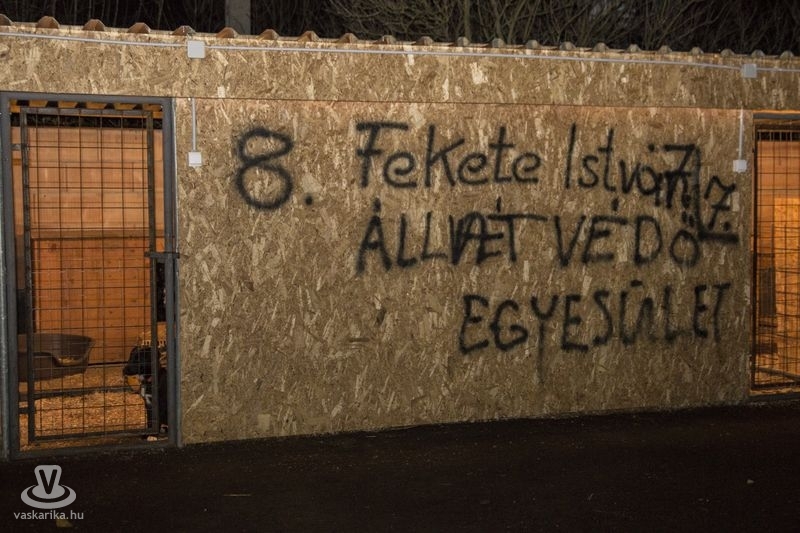 8. Fekete István 7.
ÁLLAT VÉDŐ
EGYESÜLET
V
vaskarika.hu